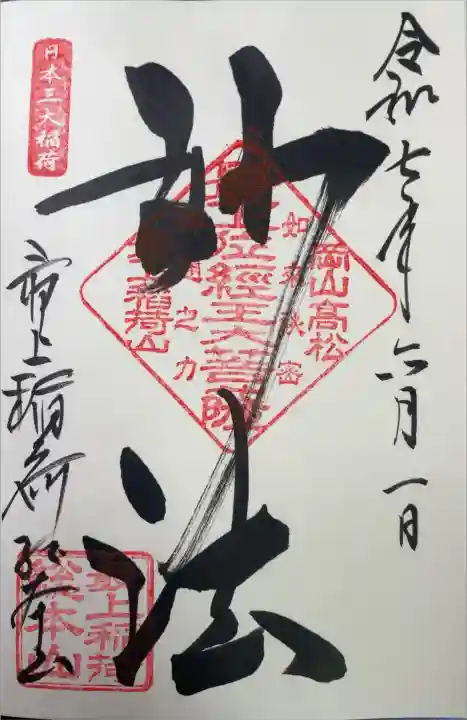 令和七年六月一日
妙法
岡山高松
如来秘密
最上位経王大菩薩
神通之力
最上稲荷山
日本三大稲荷
最上稲荷総本山
最上稲荷
総本山